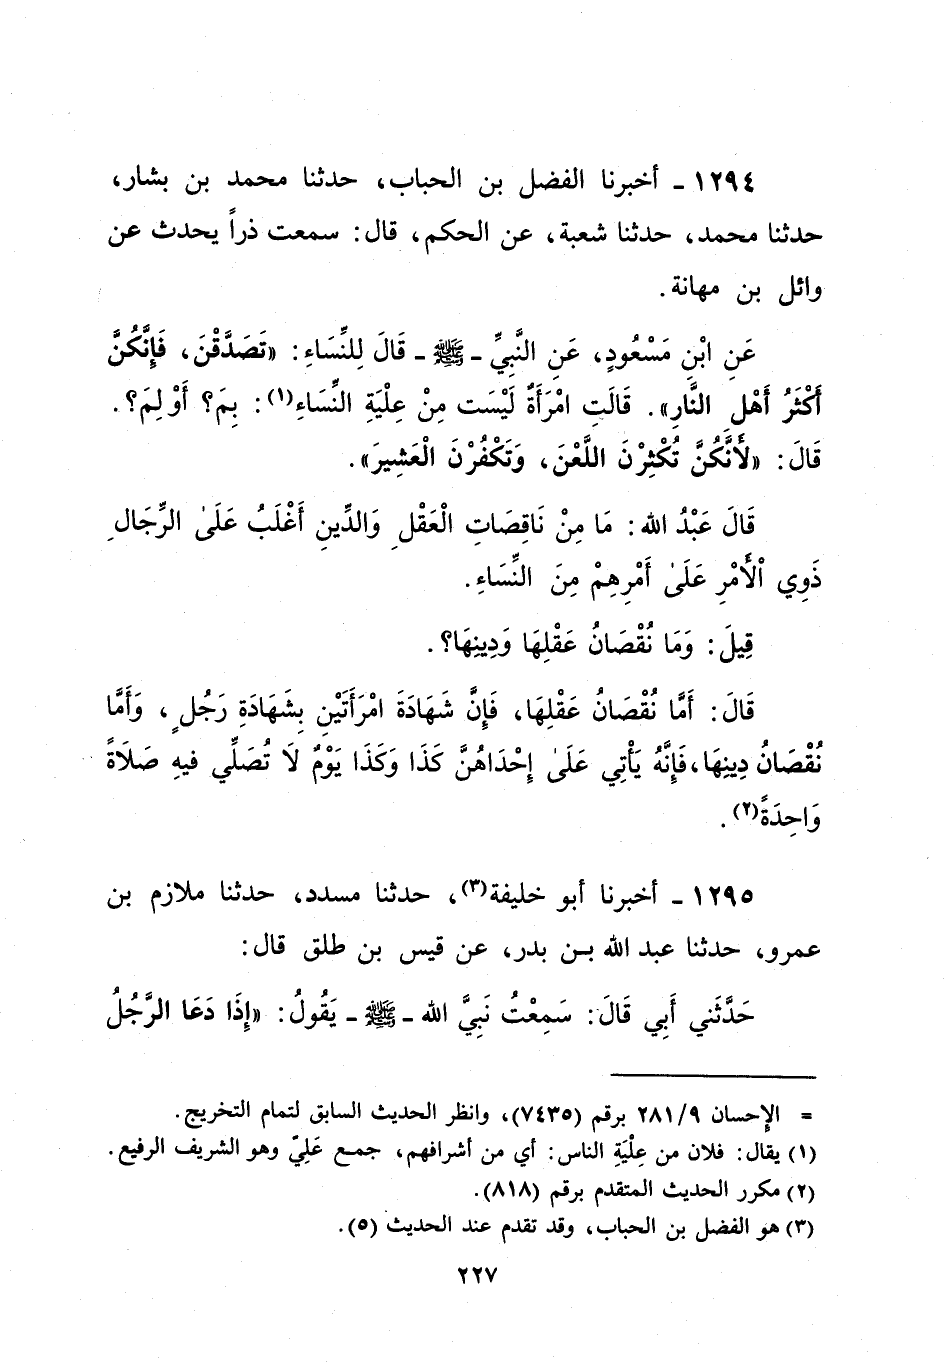 ١٢٩٤ - أخبرنا الفضل بن الحباب، حدثنا محمد بن بشار،
حدثنا محمد، حدثنا شعبة، عن الحكم، قال: سمعت ذراً يحدث عن
وائل بن مهانة.
عَنِ ابْنِ مَسْعُودٍ، عَنِ النَّبِيِّ - ﷺ - قَالَ لِلنِّسَاءِ: «تَصَدَّقْنَ، فَإِنَّكُنَّ
أَكْثَرُ أَهْلِ النَّارِ». قَالَتِ امْرَأَةٌ لَيْسَت مِنْ عِلْيَةِ النِّسَاءِ(١): بِمَ؟ أَوْ لِمَ؟.
قَالَ: «لأَنَّكُنَّ تُكْثِرْنَ اللَّعْنَ، وَتَكْفُرْنَ الْعَشِيرَ».
قَالَ عَبْدُ الله: مَا مِنْ نَاقِصَاتِ الْعَقْلِ وَالدِّينِ أَغْلَبُ عَلَىٰ الرِّجَالِ
ذَوِي الْأَمْرِ عَلَىٰ أَمْرِهِمْ مِنَ النِّسَاءِ.
قِيلَ: وَمَا نُقْصَانُ عَقْلِهَا وَدِينِهَا؟.
قَالَ: أَمَّا نُقْصَانُ عَقْلِهَا، فَإِنَّ شَهَادَةَ امْرَأَتَيْنِ بِشَهَادَةِ رَجُلٍ، وَأَمَّا
نُقْصَانُ دِينِهَا، فَإِنَّهُ يَأْتِي عَلَىٰ إِحْدَاهُنَّ كَذَا وَكَذَا يَوْمٌ لَا تُصَلِّي فيهِ صَلَاةً
وَاحِدَةً(٢).
١٢٩٥ - أخبرنا أبو خليفة(٣)، حدثنا مسدد، حدثنا ملازم بن
عمرو، حدثنا عبد الله بن بدر، عن قيس بن طلق قال:
حَدَّثَني أَبِي قَالَ: سَمِعْتُ نَبِيَّ الله - ﷺ - يَقُولُ: «إِذَا دَعَا الرَّجُلُ
= الإحسان ٩/ ٢٨١ برقم (٧٤٣٥)، وانظر الحديث السابق لتمام التخريج.
(١) يقال: فلان من عِلْيَةِ الناس: أي من أشرافهم، جمع عَلِيّ وهو الشريف الرفيع.
(٢) مكرر الحديث المتقدم برقم (٨١٨).
(٣) هو الفضل بن الحباب، وقد تقدم عند الحديث (٥).
٢٢٧